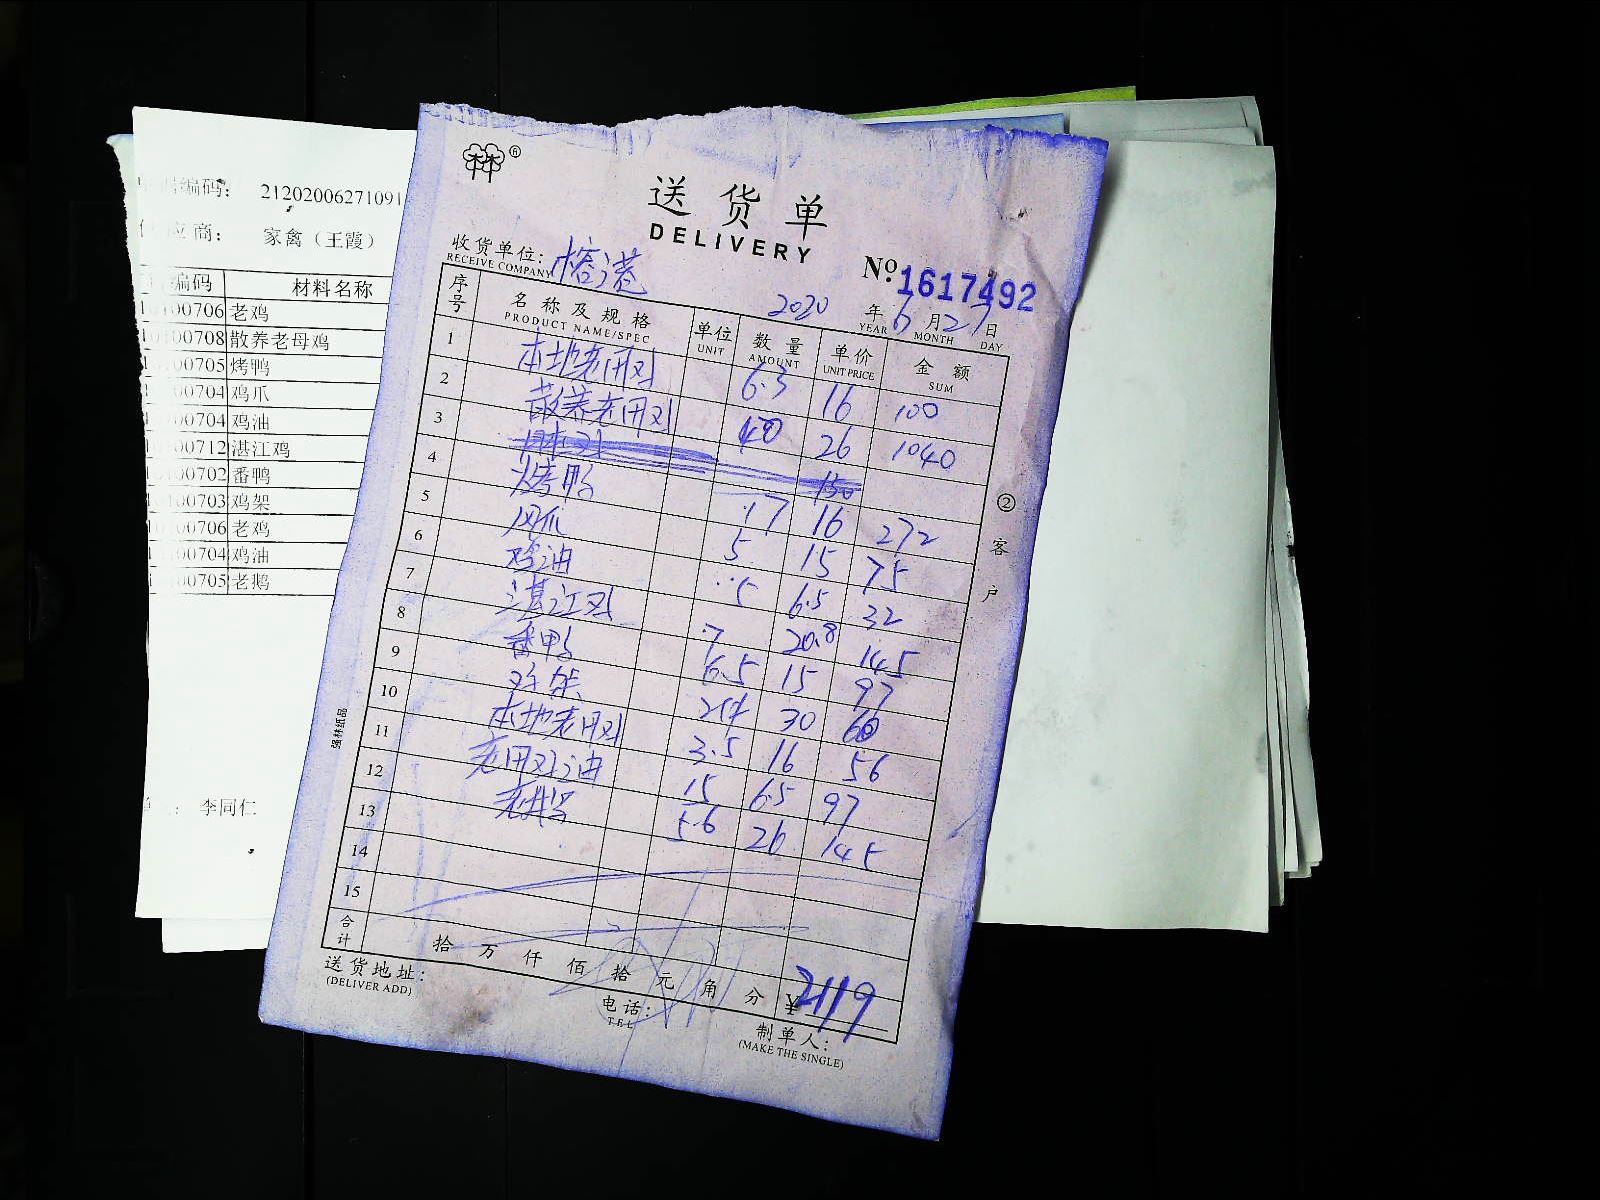 编码： 21202006271091
应商： 家禽（王霞）
编码 材料名称
100706 老鸡
100708 散养老母鸡
100705 烤鸭
100704 鸡爪
100704 鸡油
100712 湛江鸡
100702 番鸭
100703 鸡架
100706 老鸡
100704 鸡油
100705 老鹅
李同仁
林林®
送货单
DELIVERY
收货单位: 榕港
RECEIVE COMPANY
No. 1617492
2020 年 6 月 27 日
YEAR MONTH DAY
序号 名称及规格 单位 数量 单价 金额
PRODUCT NAME/SPEC UNIT AMOUNT UNIT PRICE SUM
1 本地老母鸡 6.3 16 100
2 散养老母鸡 40 26 1040
3 150
4 烤鸭 17 16 272
5 凤爪 5 15 75
6 鸡油 5 6.5 32
7 湛江鸡 7 20.8 145
8 番鸭 6.5 15 97
9 鸡架 30 60
10 本地老母鸡 3.5 16 56
11 老母鸡油 15 6.5 97
12 老鹅 5.6 26 145
13
14
15
合计 拾 万 仟 佰 拾 元 角 分 ¥2119
送货地址:
(DELIVER ADD)
电话:
TEL
制单人:
(MAKE THE SINGLE)
②客户
强林纸品